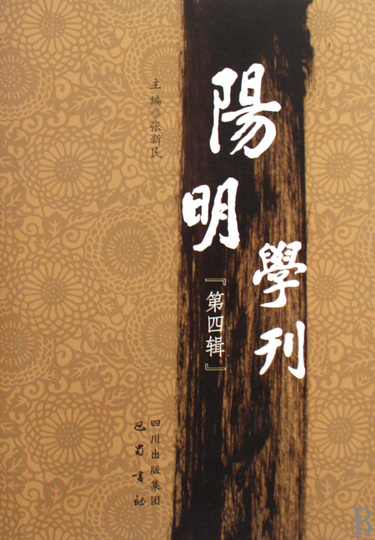 陽明
學刊
『第四辑』
主编 张新民
四川出版集团
巴蜀書社
B